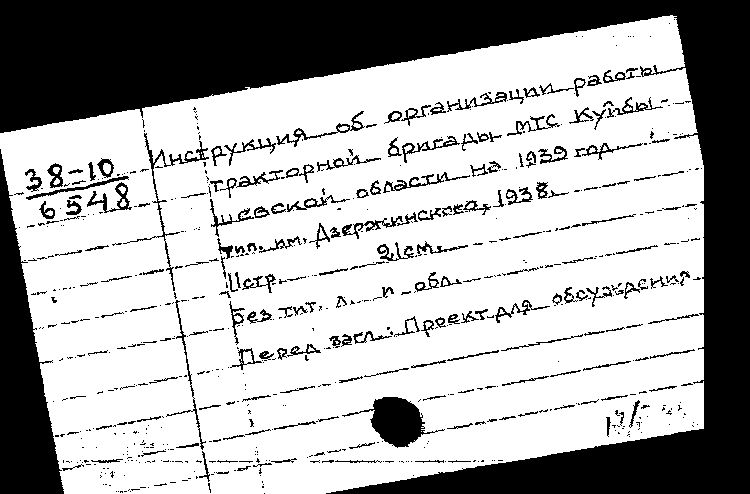 38-10
6548
Инструкция об организации работы
тракторной бригады МТС Куйбы-
шевской области на 1939 год
тип. им. Дзержинского, 1938.
11стр. 21см.
Без тит. л. и обл.
Перед загл.: Проект для обсуждения